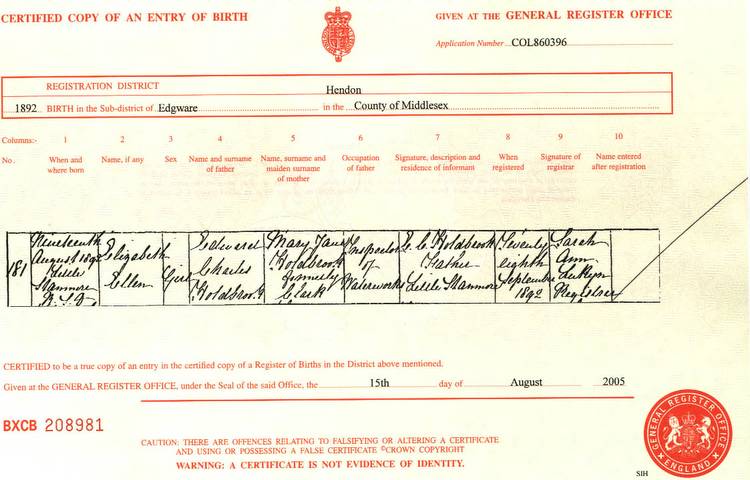 CERTIFIED COPY OF AN ENTRY OF BIRTH
GIVEN AT THE GENERAL REGISTER OFFICE
Application Number COL860396
REGISTRATION DISTRICT Hendon
1892 BIRTH in the Sub-district of Edgware in the County of Middlesex
Columns:- 1 2 3 4 5 6 7 8 9 10
No. When and where born Name, if any Sex Name and surname of father Name, surname and maiden surname of mother Occupation of father Signature, description and residence of informant When registered Signature of registrar Name entered after registration
181
Nineteenth
August 1892
Little
Stanmore
Elizabeth
Ellen
Girl
Edward
Charles
Holdbrook
Mary Jane
Holdbrook
formerly
Clark
Inspector
of
Waterworks
E. C. Holdbrook
Father
Little Stanmore
Twenty
eighth
September
1892
Sarah
Ann
Registrar
CERTIFIED to be a true copy of an entry in the certified copy of a Register of Births in the District above mentioned.
Given at the GENERAL REGISTER OFFICE, under the Seal of the said Office, the 15th day of August 2005
BXCB 208981
CAUTION: THERE ARE OFFENCES RELATING TO FALSIFYING OR ALTERING A CERTIFICATE
AND USING OR POSSESSING A FALSE CERTIFICATE ©CROWN COPYRIGHT
WARNING: A CERTIFICATE IS NOT EVIDENCE OF IDENTITY.
GENERAL REGISTER OFFICE
ENGLAND
SIH